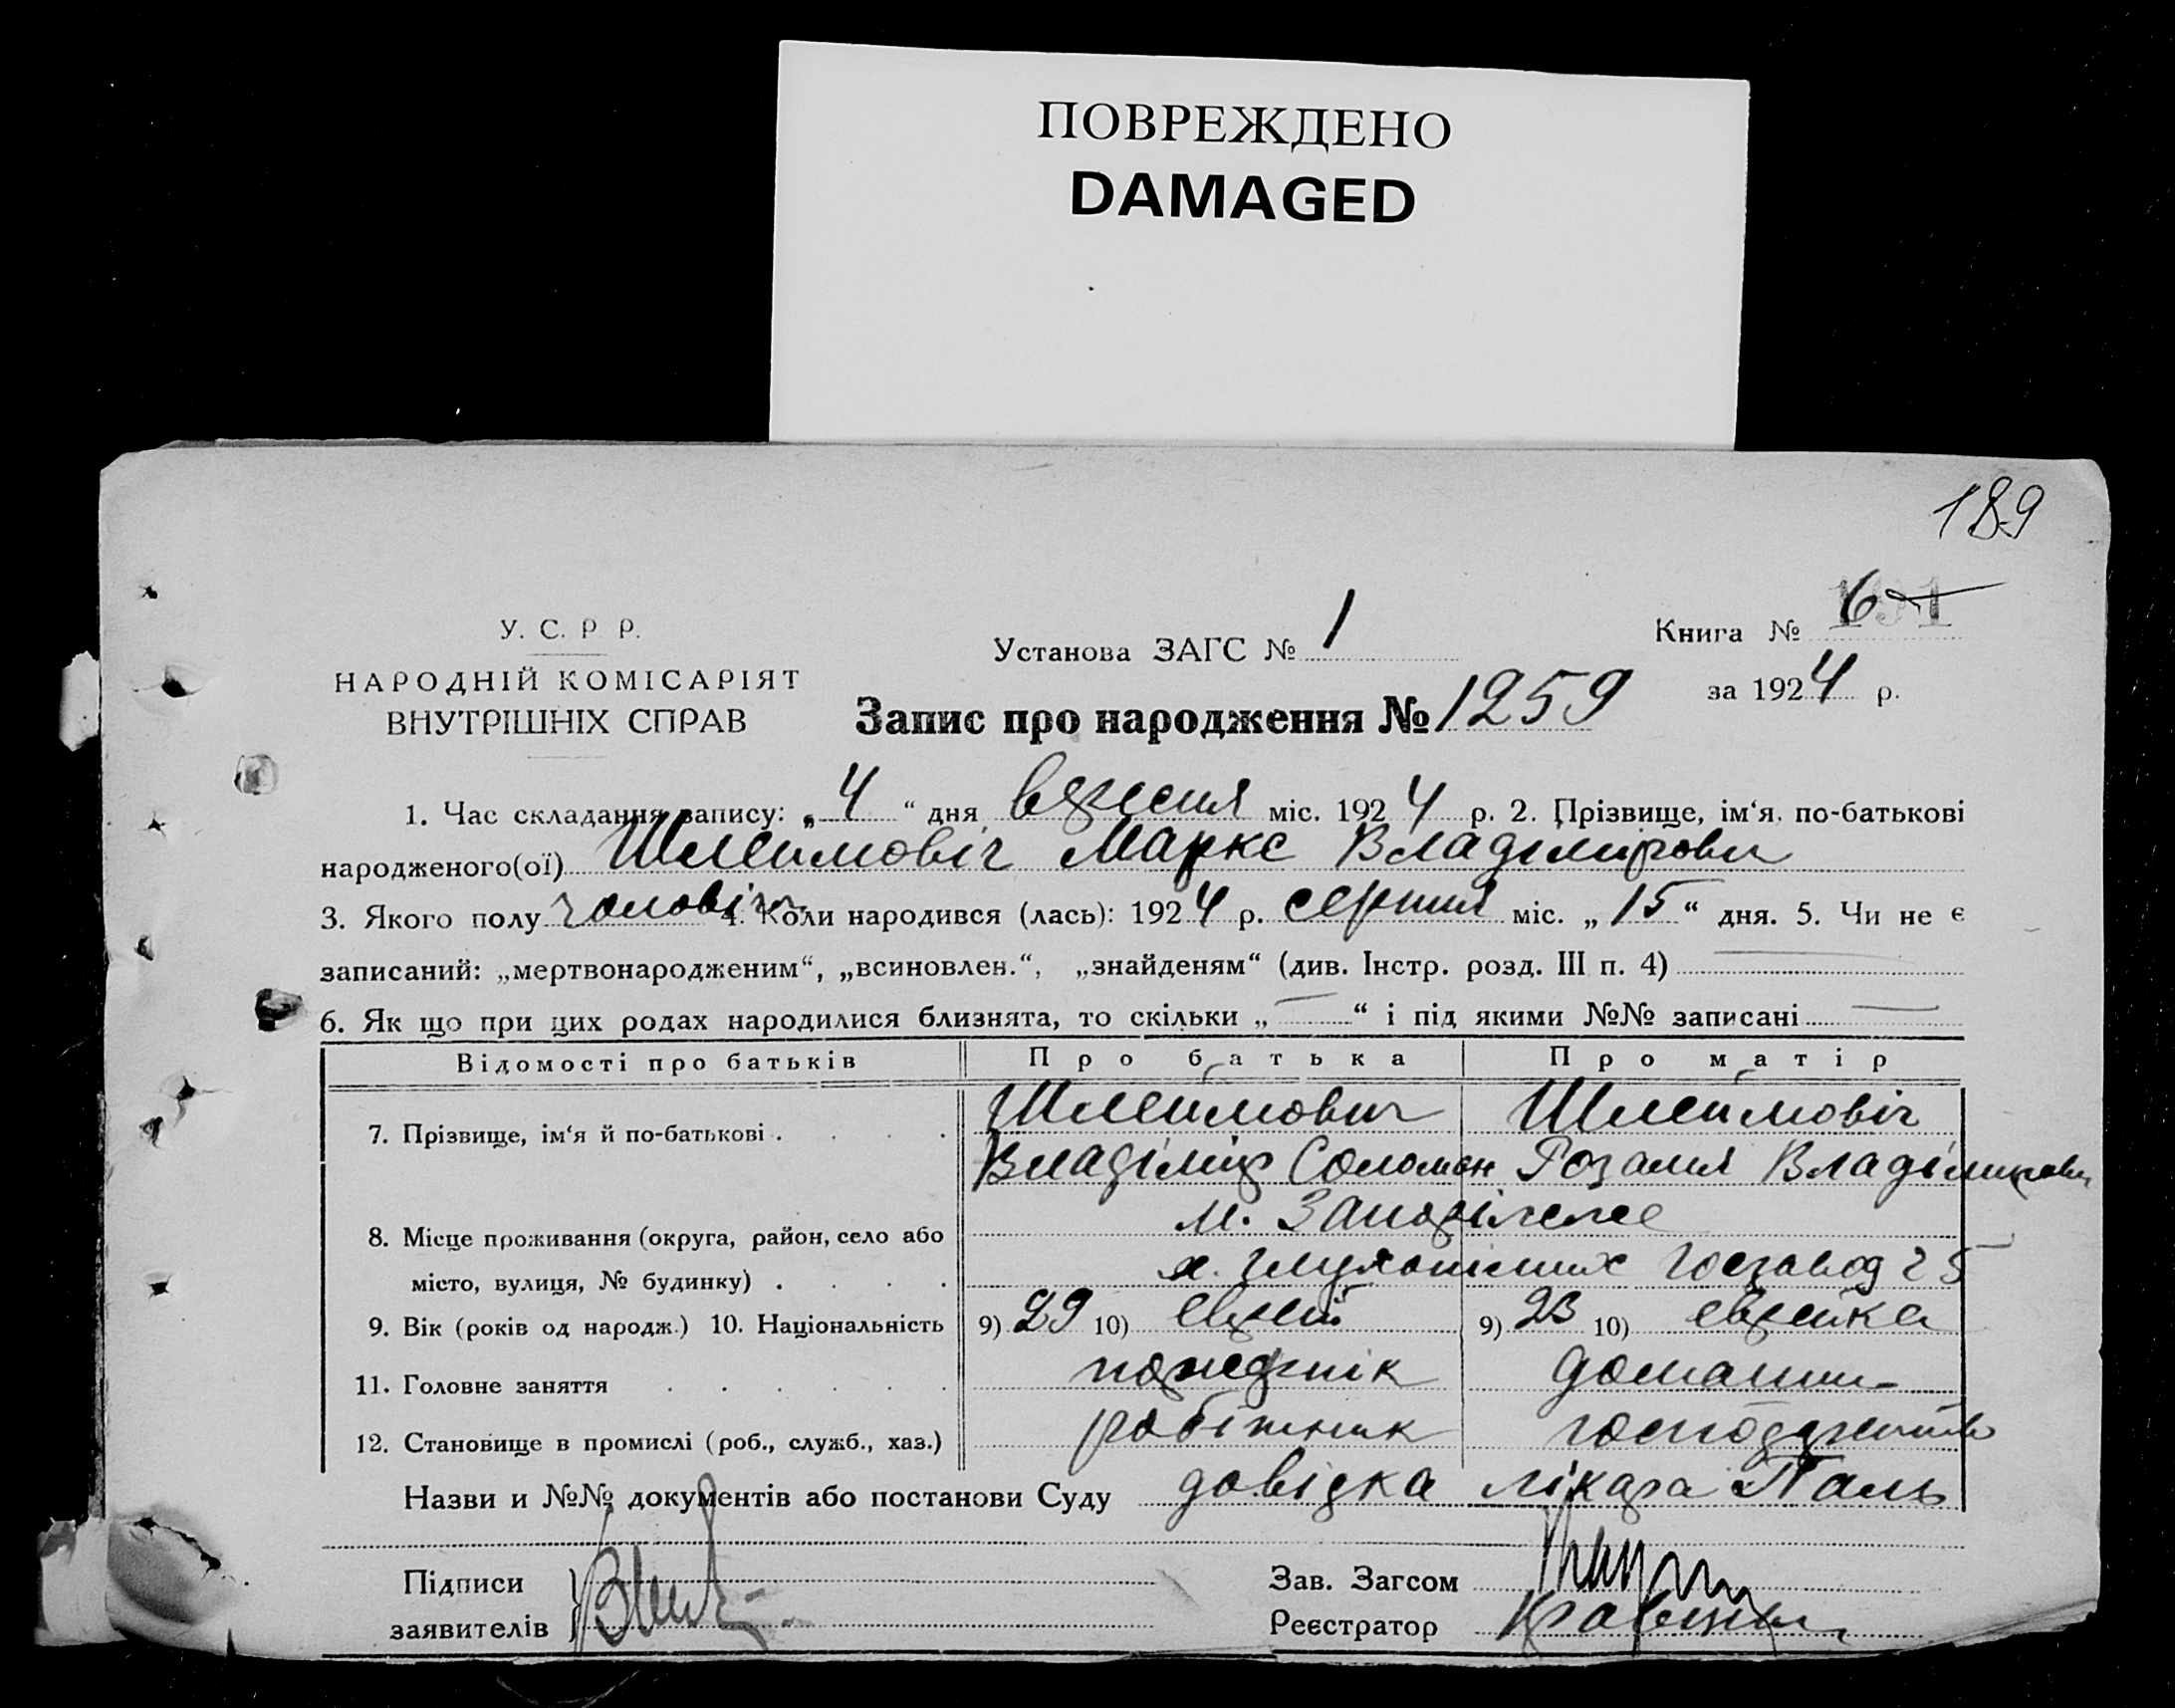 ПОВРЕЖДЕНО
DAMAGED
189
У. С. Р Р.
НАРОДНІЙ КОМІСАРІЯТ
ВНУТРІШНІХ СПРАВ
Установа ЗАГС № 1
Книга № 6
за 1924 р.
Запис про народження № 1259
1. Час складання запису: „4“ дня вересня міс. 1924 р. 2. Прізвище, ім‘я, по-батькові
народженого(ої) Шлеимовіч Маркс Владімірович
3. Якого полу чоловіч 4. Коли народився (лась): 1924 р. серпня міс. „15“ дня. 5. Чи не є
записаний: „мертвонародженим“, „всиновлен.“, „знайденям“ (див. Інстр. розд. III п. 4)
6. Як що при цих родах народилися близнята, то скільки „—“ і під якими №№ записані —
Відомості про батьків Про батька Про матір
7. Прізвище, ім‘я й по-батькові . . . . Шлеимович Шлеимовіч
Владімір Соломон Розалия Владімировн
8. Місце проживання (округа, район, село або м.
місто, вулиця, № будинку) . . . . госзавод 25
9. Вік (років од народж.) 10. Національність 9) 29 10) еврей 9) 23 10) еврейка
11. Головне заняття . . . . . . домашнє
12. Становище в промислі (роб., служб., хаз.) робітник господарство
Назви и №№ документів або постанови Суду довідка лікаря Паль
Підписи
заявителів
Зав. Загсом
Реєстратор